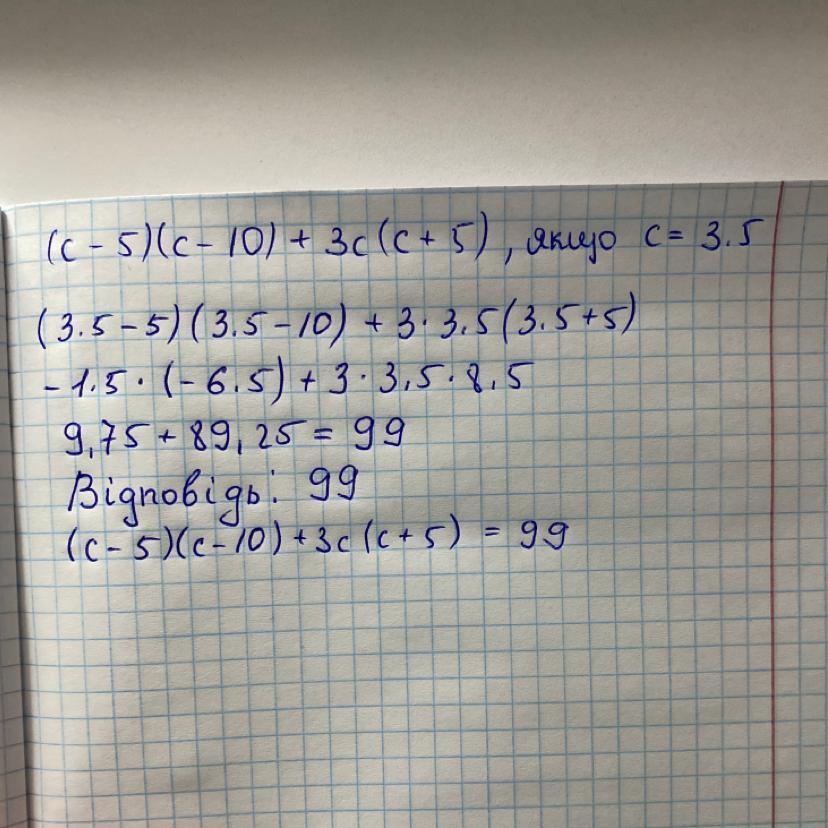 (c - 5)(c - 10) + 3c(c + 5), якщо c = 3.5
(3.5 - 5)(3.5 - 10) + 3 · 3.5(3.5 + 5)
- 1.5 · (- 6.5) + 3 · 3,5 · 8,5
9,75 + 89,25 = 99
Відповідь: 99
(c - 5)(c - 10) + 3c(c + 5) = 99